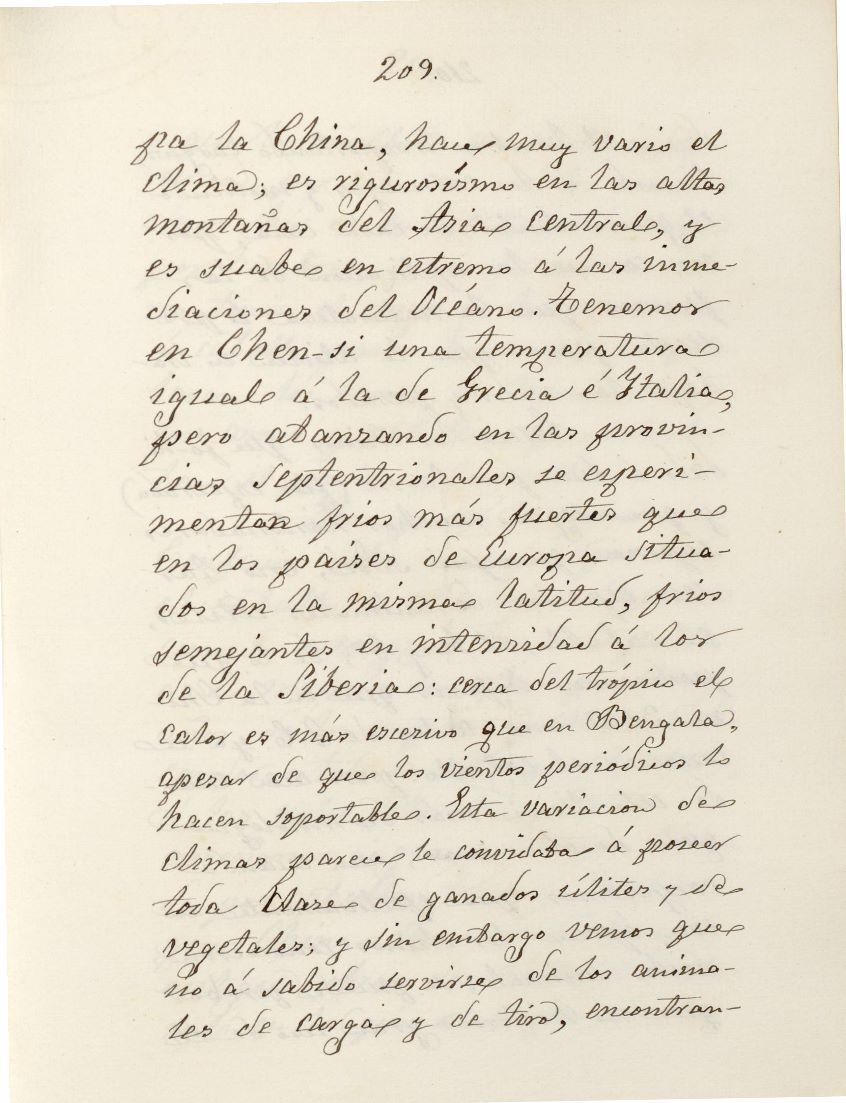 209.
pa la China, hace muy vario el
clima; es rigurosísmo en las altas
montañas del Asia central, y
es suabe en estremo á las inme-
diaciones del Océano. Tenemos
en Chen-si una temperatura
igual á la de Grecia é Italia,
pero abanzando en las provin-
cias septentrionales se esperi-
mentan frios más fuertes que
en los paises de Europa situa-
dos en la misma latitud, frios
semejantes en intensidad á los
de la Siberia: cerca del trópico el
calor es más escesivo que en Bengala,
apesar de que los vientos periódicos lo
hacen soportable. Esta variacion de
climas parece le convidaba á poseer
toda clase de ganados úlites y de
vegetales; y sin embargo vemos que
no á sabido servirse de los anima-
les de carga y de tiro, encontran-